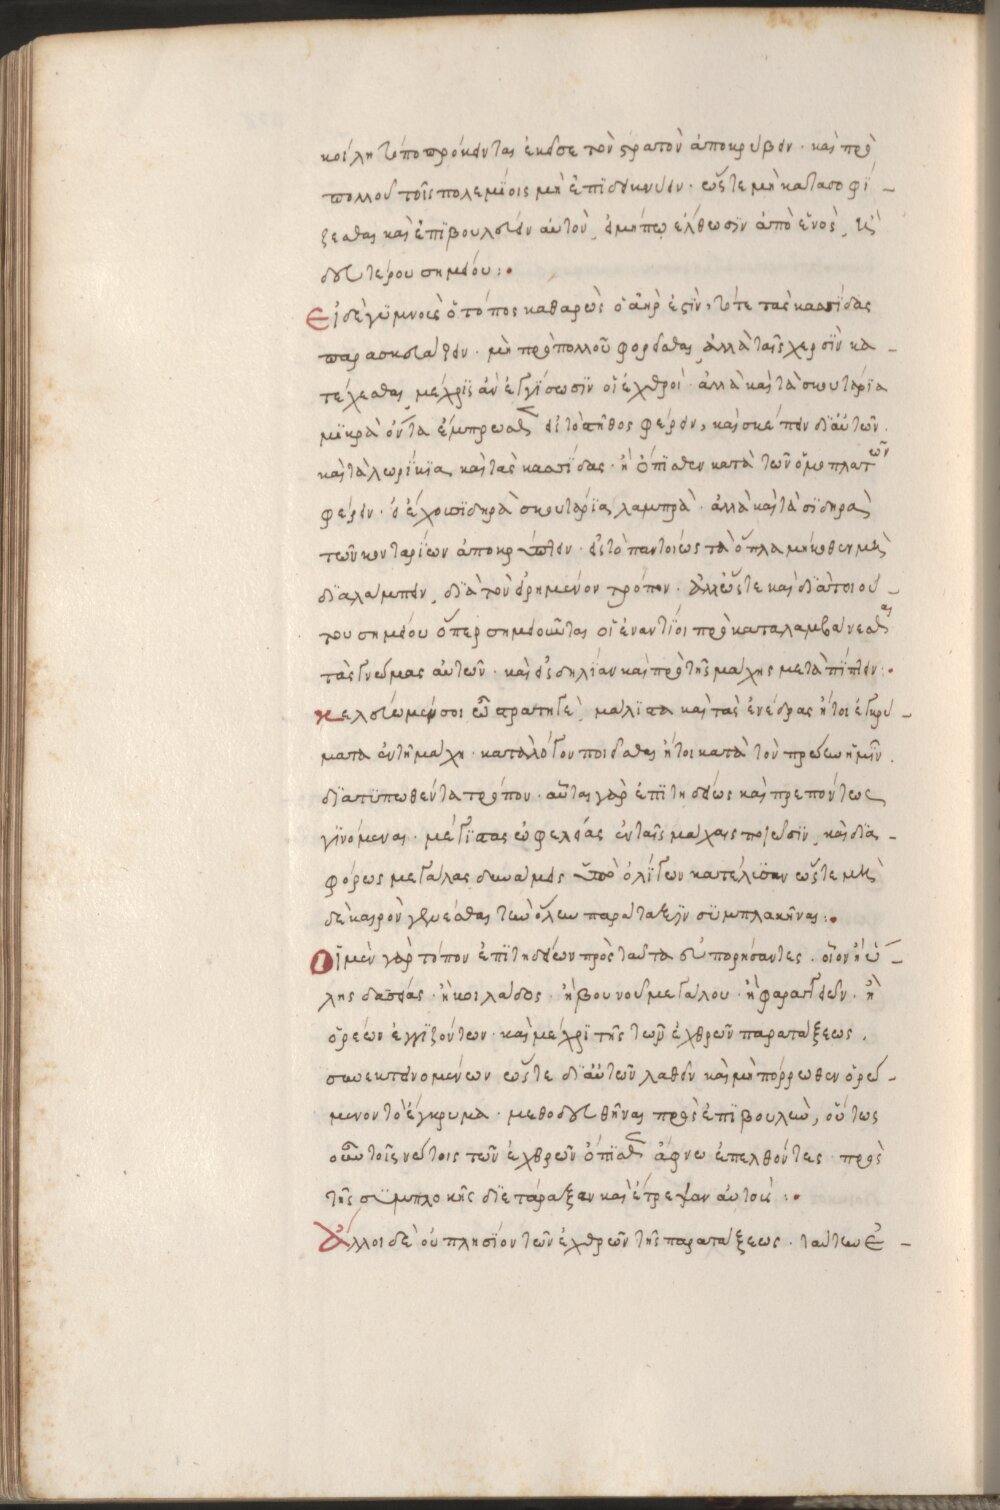 κοίλη τόπο προκόντας ἐκεῖσε τὸν στρατὸν ἀποκρύβειν · καὶ πρὸ
πολλοῦ τοῖς πολεμίοις μὴ ἐπϊδεικνύειν · ὥστε μὴ κατασοφί-
ζεσθαι καὶ ἐπϊβουλεύειν αὐτὸν, εἰ μήπω ἔλθωσϊν ἀπὸ ἑνὸς, ἢ
δευτέρου σημείου :·
Εἰ δὲ γϋμνὸς ὁ τόπος καθαρὸς ὁ ἀὴρ ἐστὶν, τότε τὰς κασσίδας
παρασκευάζειν · μὴ πρὸ πολλοῦ φορεῖσθαι, ἀλλὰ ταῖς χερσϊν κα-
τέχεσθαι, μέχρϊς ἂν ἐγγίσωσϊν οἱ ἐχθροί · ἀλλὰ καὶ τὰ σκουτάρϊα
μϊκρὰ ὄντα ἔμπροσθεν εἰς τὸ στῆθος φέρειν, καὶ σκέπειν δϊ' αὐτῶν.
καὶ τὰ λωρίκϊα, καὶ τὰς κασσίδας · ἢ ὄπϊσθεν κατὰ τῶν ὠμοπλατῶν
φέρειν · ὁ ἔχουσϊ σϊδηρὰ σκουτάρϊα, λαμπρὰ · ἀλλὰ καὶ τὰ σϊδηρὰ
τῶν κονταρίων ἀποκρύπτειν · εἰς τὸ παντοίως τὰ ὅπλα μήκοθεν μὴ
δϊαλάμπειν, δϊὰ τὸν εἰρημένον τρόπον · ἄλλως τε καὶ δϊὰ τοιού-
του σημείου ὅπερ σημειοῦνται οἱ ἐναντίοι προκαταλαμβάνεσθαι
τὰς γνώμας αὐτῶν · καὶ εἰς δηλίαν καὶ πρὸ τῆς μάχης μεταπίπτειν :·
κελευόμεν σοι ὦ στρατηγὲ, μάλϊστα καὶ τὰς ἐνέδρας ἤτοι ἐγκρύ-
ματα ἐν τῇ μάχῃ · κατὰ λόγον ποιεῖσθαι, ἤτοι κατὰ τὸν πρώην ἡμῖν.
δϊατϋπωθέντα τρόπον · αὗται γὰρ ἐπϊτηδείως καὶ πρεπόντως
γϊνόμεναι · μεγίστας ὠφελείας ἐν ταῖς μάχαις ποιοῦσϊν, καὶ δϊα-
φόρως μεγάλας δυνάμεις ὑπὸ ὀλίγων κατέλϋσαν ὥστε μὴ
δὲ καιρὸν γενέσθαι τὴν ὅλην παράταξϊν σϋμπλακῆναι :·
Οἱ μὲν γὰρ τόπον ἐπϊτηδείων πρὸς ταῦτα εὐπορήσαντες · οἷον ἢ ὕ-
λης δασείας · ἢ κοιλάδος · ἢ βουνοῦ μεγάλου · ἢ φαράγγων · ἢ
ὀρέων ἐγγϊζόντων · καὶ μέχρϊ τῆς τῶν ἐχθρῶν παρατάξεως,
συνεκτεινομένων ὥστε δϊ' αὐτῶν λαθεῖν καὶ μὴ πόρρωθεν ὁρώ-
μενον τὸ ἔγκρυμα · μεθοδευθῆναι πρὸς ἐπϊβουλὴν, οὕτως
οὖν τοῖς νώτοις τῶν ἐχθρῶν ὄπϊσθεν ἄφνω ἐπελθόντες · πρὸς
τῆς σϋμπλοκῆς δϊετάραξαν καὶ ἔτρεψαν αὐτοὺς :·
Ἄλλοι δὲ οὐ πλησίον τῶν ἐχθρῶν τῆς παρατάξεως · ταύτην ἐ-